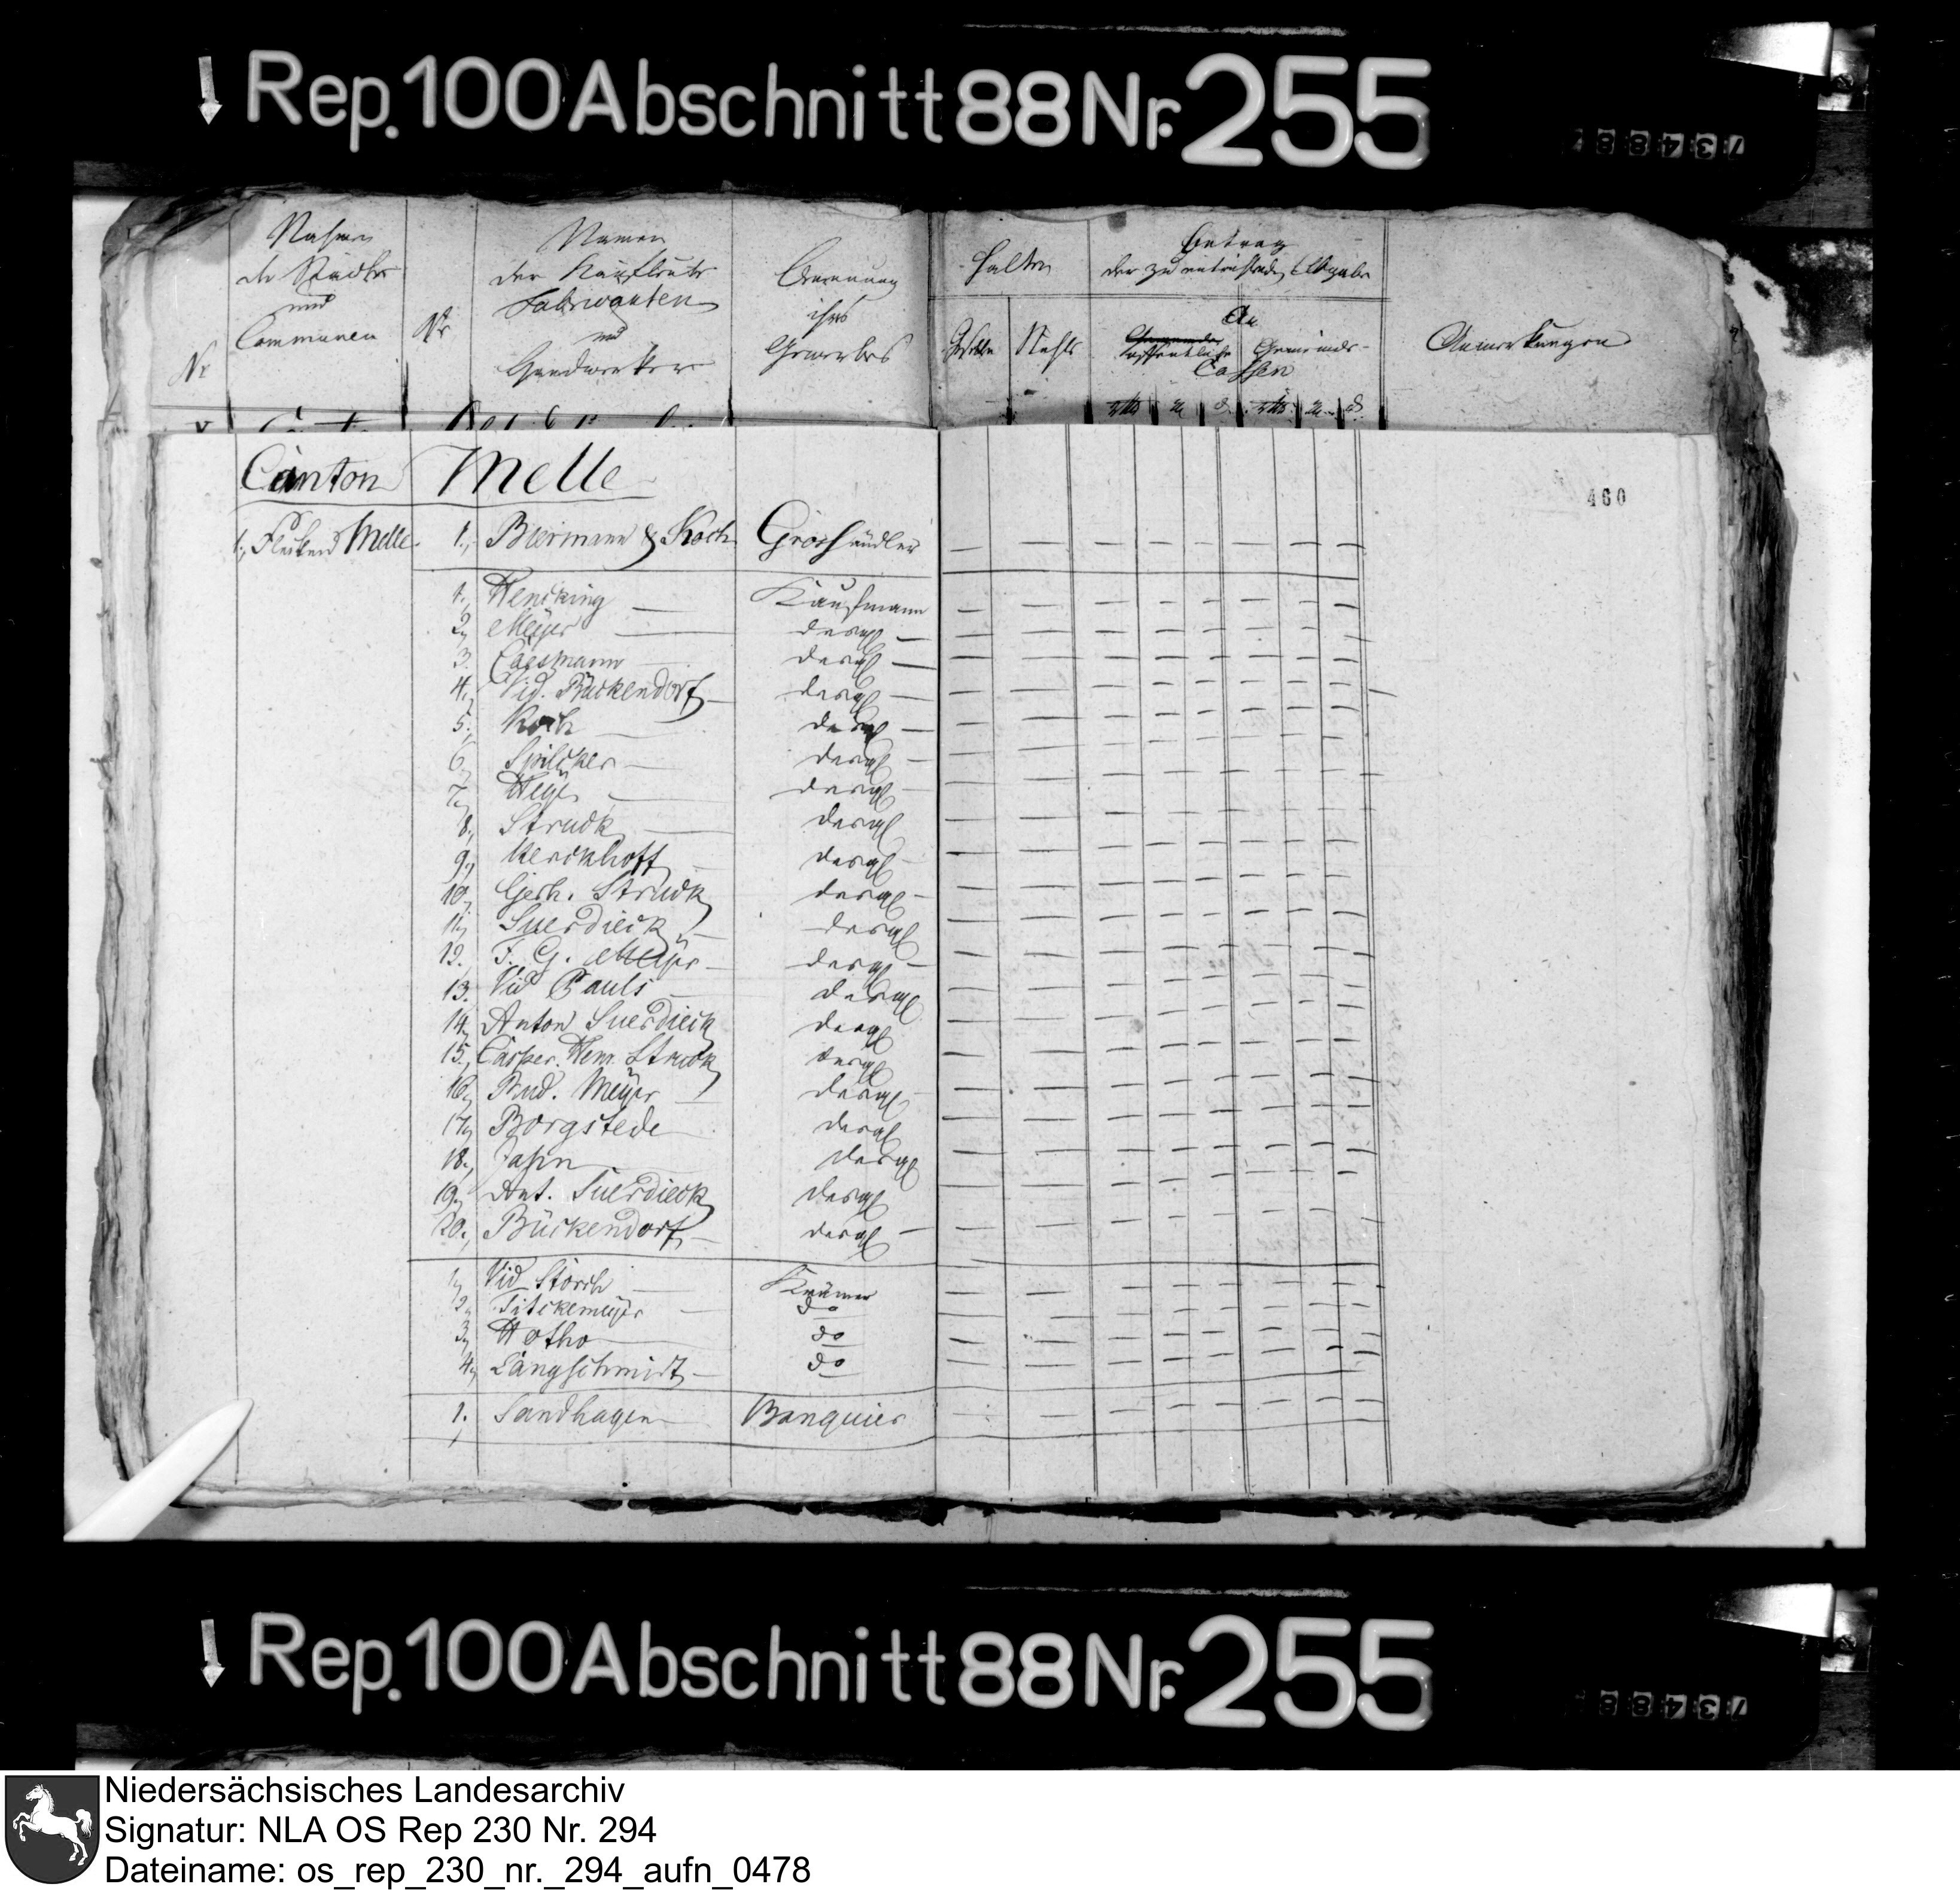 Rep. 100 Abschnitt 88 Nr. 255
734887
Nr
Nahmen
der Städte
und
Communen
Nr
Namen
der Kaufleute
Fabricanten
und
Handwerker
Benennung
ihres
Gewerbes
Halten
Betrag
der zu entrichtenden Abgabe
An
Gemeinde-
Cassen
Anmerkungen
Canton Melle
460
1., Flecken Melle 1., Biermann & Koch Groshändler
1., Hencking Kaufmann
2, Meyer desgl
3. Cassmann desgl
4., Vid. Bückendorf desgl
5., Koch desgl
6, Spilcker desgl
7, Heye desgl
8., Struck desgl
9, Kerckhoff desgl
10, Gerh. Struck desgl
11, Suerdieck desgl
12. F. G. Meyer desgl
13. Vid Pauls desgl
14, Anton Suerdieck desgl
15., Casper. Hen. Struck desgl
16, Rud. Meyer desgl
17, Borgstede desgl
18., Jahn desgl
19, Ant. Suerdieck desgl
20., Bückendorf desgl
1, Vid Storch Krämer
2, Titckemeyer do
3, Hotho do
4, Langschmidt do
1., Sandhagen Banquier
Rep. 100 Abschnitt 88 Nr. 255
734887
Niedersächsisches Landesarchiv
Signatur: NLA OS Rep 230 Nr. 294
Dateiname: os_rep_230_nr._294_aufn_0478